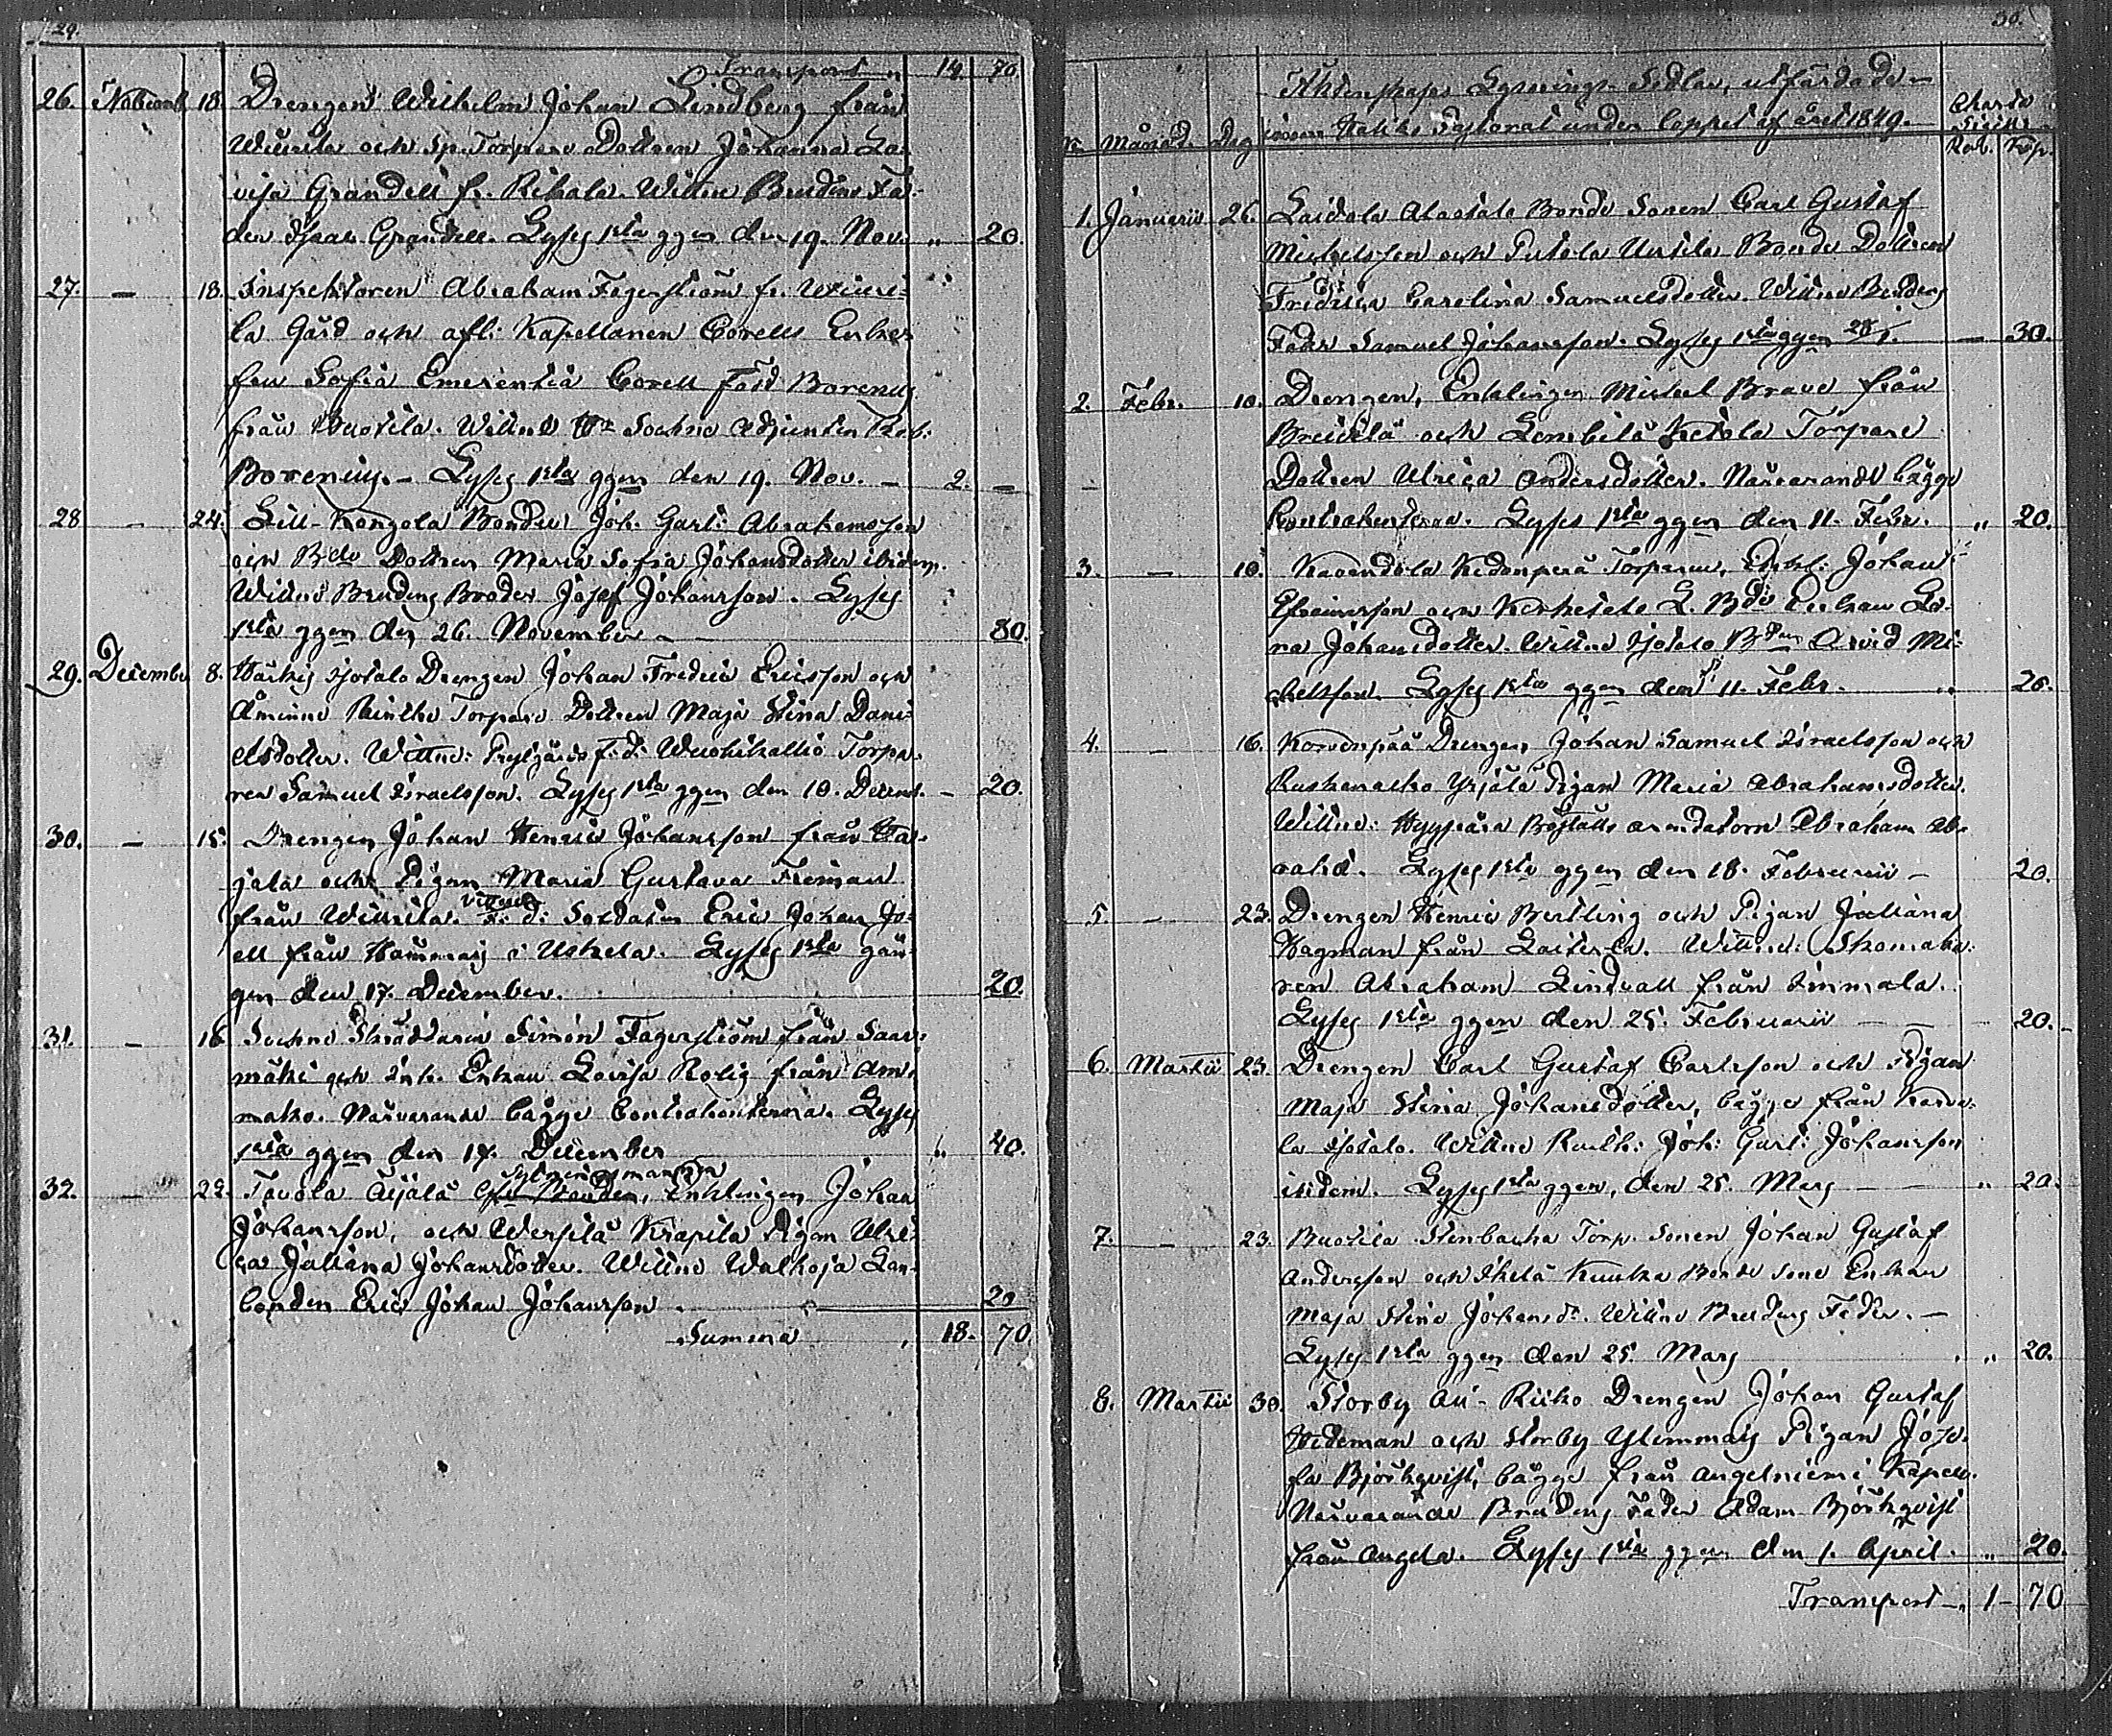 29.
Transport „ 14. 70.
26. Novemb. 18. Drengen Wilhelm Johan Lindberg från
Wiurila och Sp. Torpare Dottren Johanna Lo-
visa Grandell fr. Rikala. Wittne Brudens Fa-
der Isaac Grandell. Lyses 1sta ggen den 19. Nov. „ 20.
27. — 18. Inspektoren Abraham Fagerström fr. Wiuri-
la Gård och afl: Kapellanen Corells Enke-
fru Sofia Emerentia Corell född Borenius
från Buotila. Wittne Hr Sockne Adjuncten Rob:
Borenius. — Lyses 1sta ggen den 19. Nov. — 2. —
28 — 24. Lill-Kongola Bonden Joh. Gust: Abrahamsson
och Bde Dottren Maria Sofia Johansdotter ibidem.
Wittne Brudens Broder Josef Johansson. Lyses
1sta ggen den 26. November — 30.
29. December 8. Drengen Johan Fredric Ericsson och
Åminne Torpare Dottren Maja Stina Dani-
elsdotter. Wittne: f.d. Wuohikallio Torpa-
ren Samuel Israelsson. Lyses 1sta ggen den 10. Decemb. — 20.
30. — 15. Drengen Johan Henric Johansson från Ha-
jala och Pigan Maria Gustava Freiman
från Wiurila. Wittne F: d: Soldaten Eric Johan Jo-
ell från i Uskela. Lyses 1sta gån-
gen den 17. December. 20.
31. — 16 Sockne Skräddaren Simon Fagerström från Saar-
mäki och Inh. Enkan Lovisa Rolig från Am-
mako. Närvarande bägge Contrahenterna. Lyses
1sta ggen den 17. December „ 40.
32. — 22. Tavola Äijälä Enklingen Johan
Johansson, och Wersilä Krapila Pigan Ulri-
ca Juliana Johansdotter. Wittne Walhoja Lan-
bonden Eric Johan Johansson. 20
Summa „ 18. 70.
30.
Äktenskaps Lysnings-Sedlar, utfärdade
inom Haliko Pastorat under loppet af året 1849.
Charta
Sigill:
N: Månad. Dag Rub. Kop.
1. Januarii 26. Bonde Sonen Carl Gustaf
Michelsson och Bonde Dottren
Fredrica Carolina Samuelsdotter. Wittne Brudens
Fader Samuel Johansson. Lyses 1sta ggen 28/1. — 30.
2. Febr. 10. Drengen, Enklingen Michel Brave från
Breidilä och Ketola Torpare
Dottren Ulrica Andersdotter. Närvarande bägge
Contrahenterna. Lyses 1sta ggen den 11. Febr. „ 20.
3. — 10. Torparen, Enkl: Johan
Efraimsson och L. Bde Enkan Le-
na Johansdotter. Wittne Sjotalo Bden Arvid Mi-
chelsson. Lyses 1sta ggen den 11. Febr. „ 20.
4. — 16. Korvenpää Drengen, Johan Samuel Israelsson och
Yrjälä Pigan Maria Abrahamsdotter.
Wittne: Böställs arendatorn Abraham Ab-
Lyses 1sta ggen den 18. Februarii — 20.
5. — 23. Drengen Henric Bertling och Pigan Juliana
Hagman från Laiterla. Wittne: Skomaka-
ren Abraham Lindvall från Immala.
Lyses 1sta ggen den 25. Februarii — 20.
6. Martii 23. Drengen Carl Gustaf Carlsson och Pigan
Maja Stina Johansdotter, bägge från
Wittne Rusth: Joh: Gust: Johansson
ibidem. Lyses 1sta ggen, den 25. Mars — „ 20.
7. — 23. Buotila Stenbacka Torp. Sonen Johan Gustaf
Andersson och Bonde Sone Enkan
Maja Stina Johansd:. Wittne Brudens Fader. —
Lyses 1sta ggen den 25. Mars „ 20.
8. Martii 30. Storby Ali-Riiko Drengen Johan Gustaf
Hedeman och Storby Ylimmäis Pigan Jose-
fa Björkqvist, bägge från Angelniemi Kapell.
Närvarande Brudens Fader Adam Björkqvist
från Angela. Lyses 1sta ggen den 1. April. „ 20.
Transport „ 1 — 70